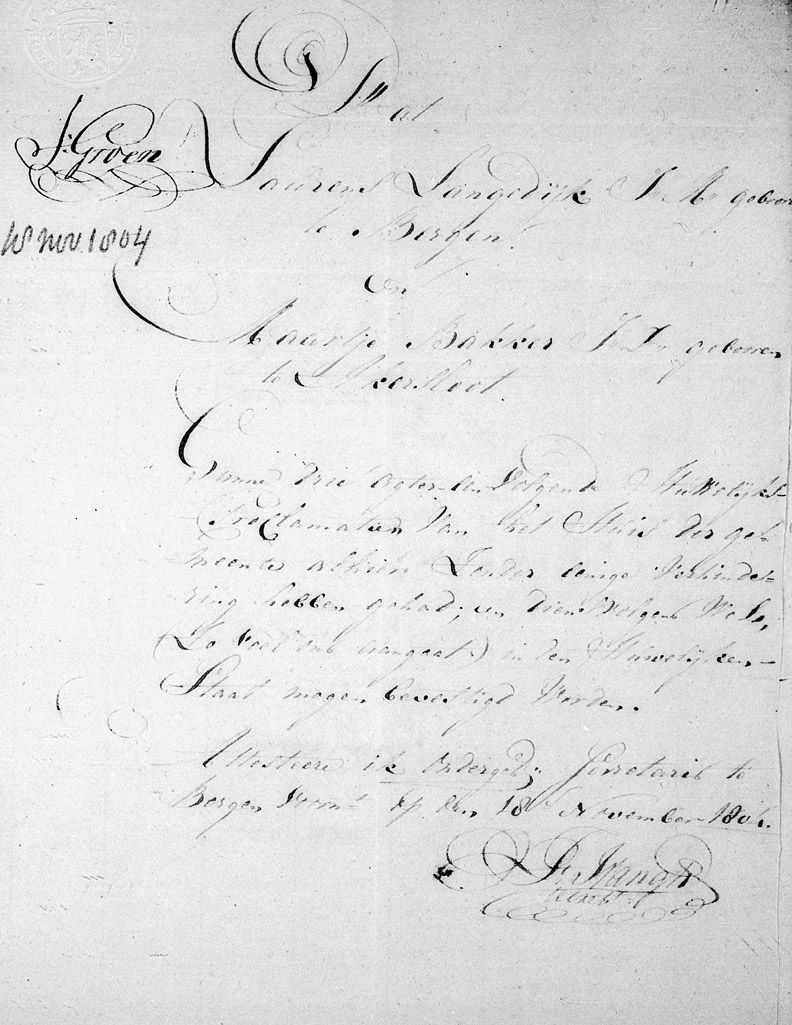 Dat
J: Groen
Laurens Langedijk J: M: geboren
te Bergen
18 nov 1804
En
Maartje Bakker J: D: geboren
te Akersloot
Hunne drie agter-een-Volgende Huwelijks-
Proclamatien Van het Huis der ge-
meente alhier Zonder eenige Verhinde-
ring hebben gehad; en dien Volgens
(Zo veel ons aangaat) in den Huwelijken-
Staat mogen bevestigd Worden.
Attesteere ik Secretaris te
Bergen Voorn.t Op den 18.e November 1804.